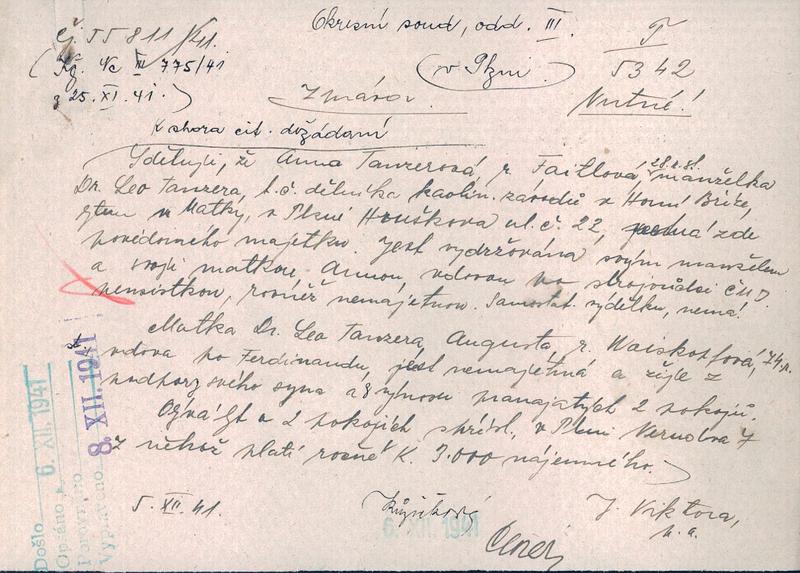 Čj. 55811/41.
Okresní soud, odd. III.
(Kg. Nc III 775/41
v Plzni
5342
z 25. XI. 41.)
Zpráva.
Nutné!
K shora cit. dožádání
sděluji, že Anna Tanzerová, r. Faitlová, manželka
Dr. Leo Tanzera, t. č. dělníka kaolin. závodů v Horní Bříze,
bytem u Matky, v Plzni Hruškova ul. č. 22, nemá zde
povědomého majetku. Jest vydržována svým manželem
a svojí matkou Annou vdovou po strojvůdci ČMD.
pensistkou, rovněž nemajetnou. Samostat. výdělku, nemá.
Matka Dr. Leo Tanzera, Augusta, r. Waiskopfová, 74 r.
vdova po Ferdinandu, jest nemajetná a žije z
podpory svého syna a z výnosu pronajatých 2 pokojů.
Obývá byt o 2 pokojích s přísl. v Plzni Nerudova 7
z něhož platí ročně K. 3.000 nájemného.
5. XII. 41.
J. Viktora,
Došlo 6. XII. 1941
Opsáno
Porovnáno
Vypraveno 8. XII. 1941